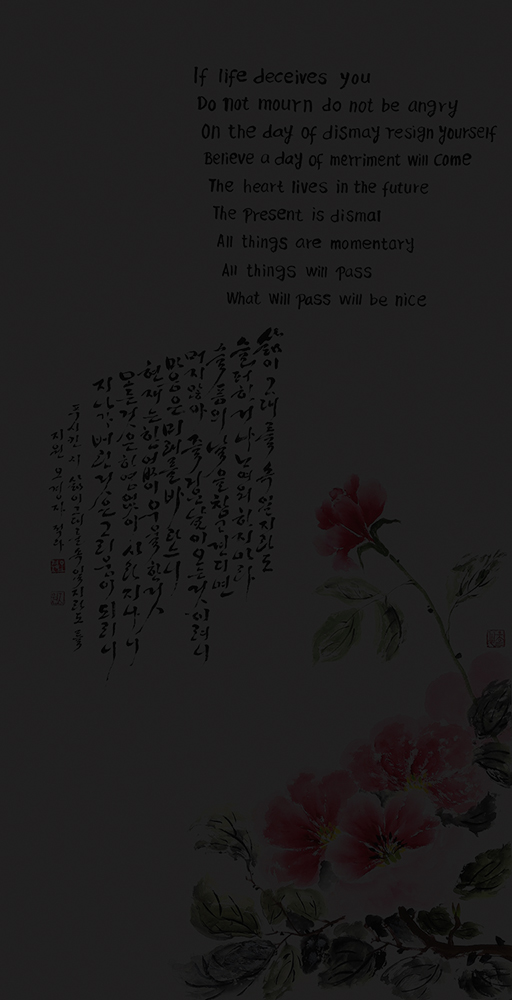 If life deceives you
Do not mourn do not be angry
On the day of dismay resign yourself
Believe a day of merriment will come
The heart lives in the future
The present is dismal
All things are momentary
All things will pass
What will pass will be nice
삶이 그대를 속일지라도
슬퍼하거나 노여워하지마라
슬픔의 날을 참고 견디면
머지않아 즐거운 날이 오는것이려니
마음은 미래를 바라느니
현재는 한없이 우울한것
모든것은 하염없이 사라지나니
지나가버린것은 그리움이 되리니
푸시킨 시 삶이 그대를 속일지라도 를
지원